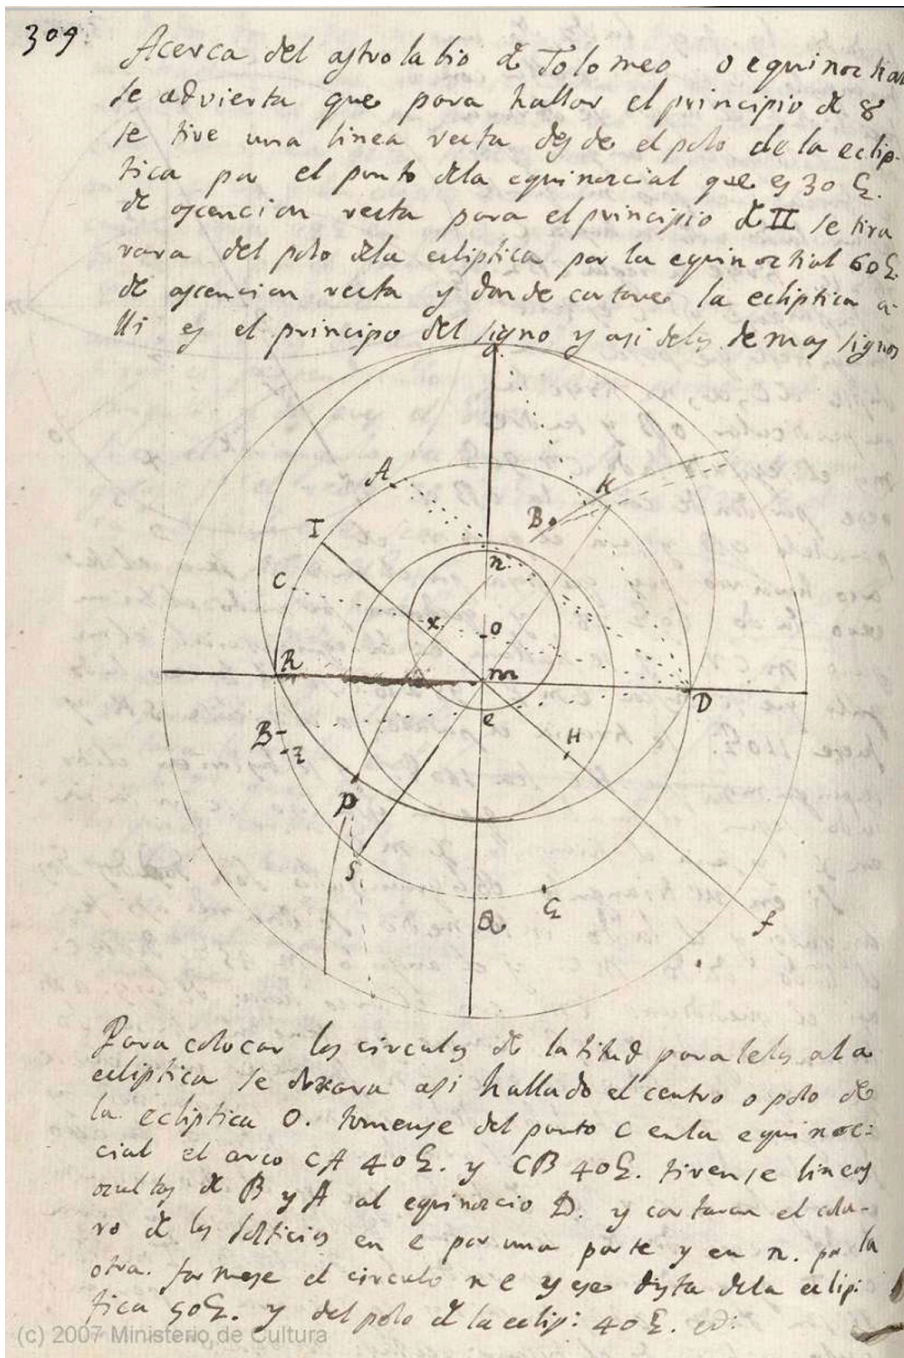 309.
Acerca del astrolabio de Tolomeo o equinoctial
se advierta que para hallar el principio de ♉
se tire una linea recta desde el polo de la eclip-
tica por el punto dela equinoccial que es 30 G.
de ascencion recta para el principio de II se tira
rara del polo dela ecliptica por la equinoctial 60G.
de ascencion recta y donde cortare la ecliptica a-
lli es el principo del signo y asi delos demas signos
A
K
B
I
n
C
x
o
R
m
D
e
B
z
H
P
S
G
Q
f
Para colocar los circulos de latitud paralelos ala
ecliptica se asi hallado el centro o polo de
la ecliptica O. tomense del punto C enla equinoc:
cial el arco CA 40G. y CB 40G. tirense lineas
ocultas de B y A al equinoccio D. y cortaran el colu-
ro de los solsticios en e por una parte y en n. por la
otra. formese el circulo ne y ese dista dela eclip:
tica 50G. y del polo de la eclip: 40G.
(c) 2007 Ministerio de Cultura